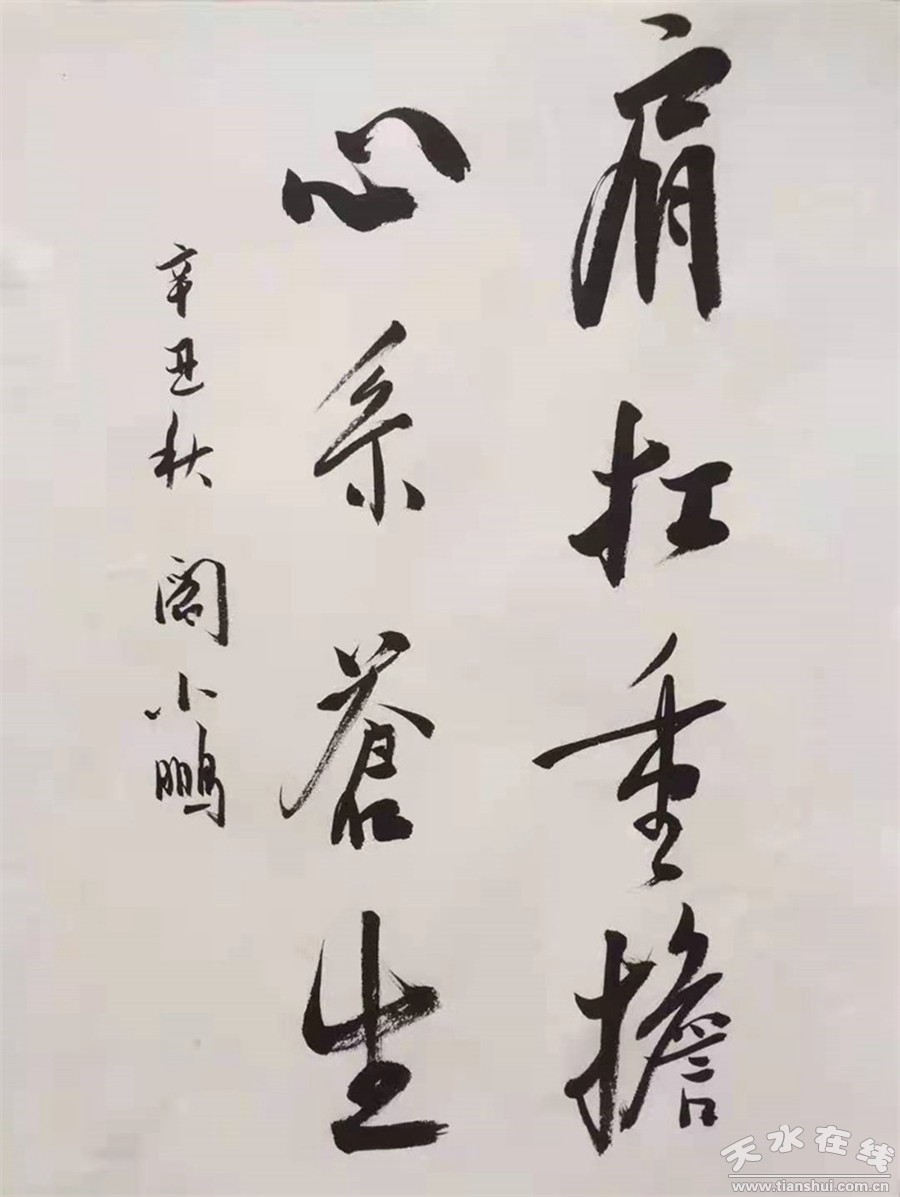 肩扛重擔
心系蒼生
辛丑秋 阎小鵬
天水在线
www.tianshui.com.cn